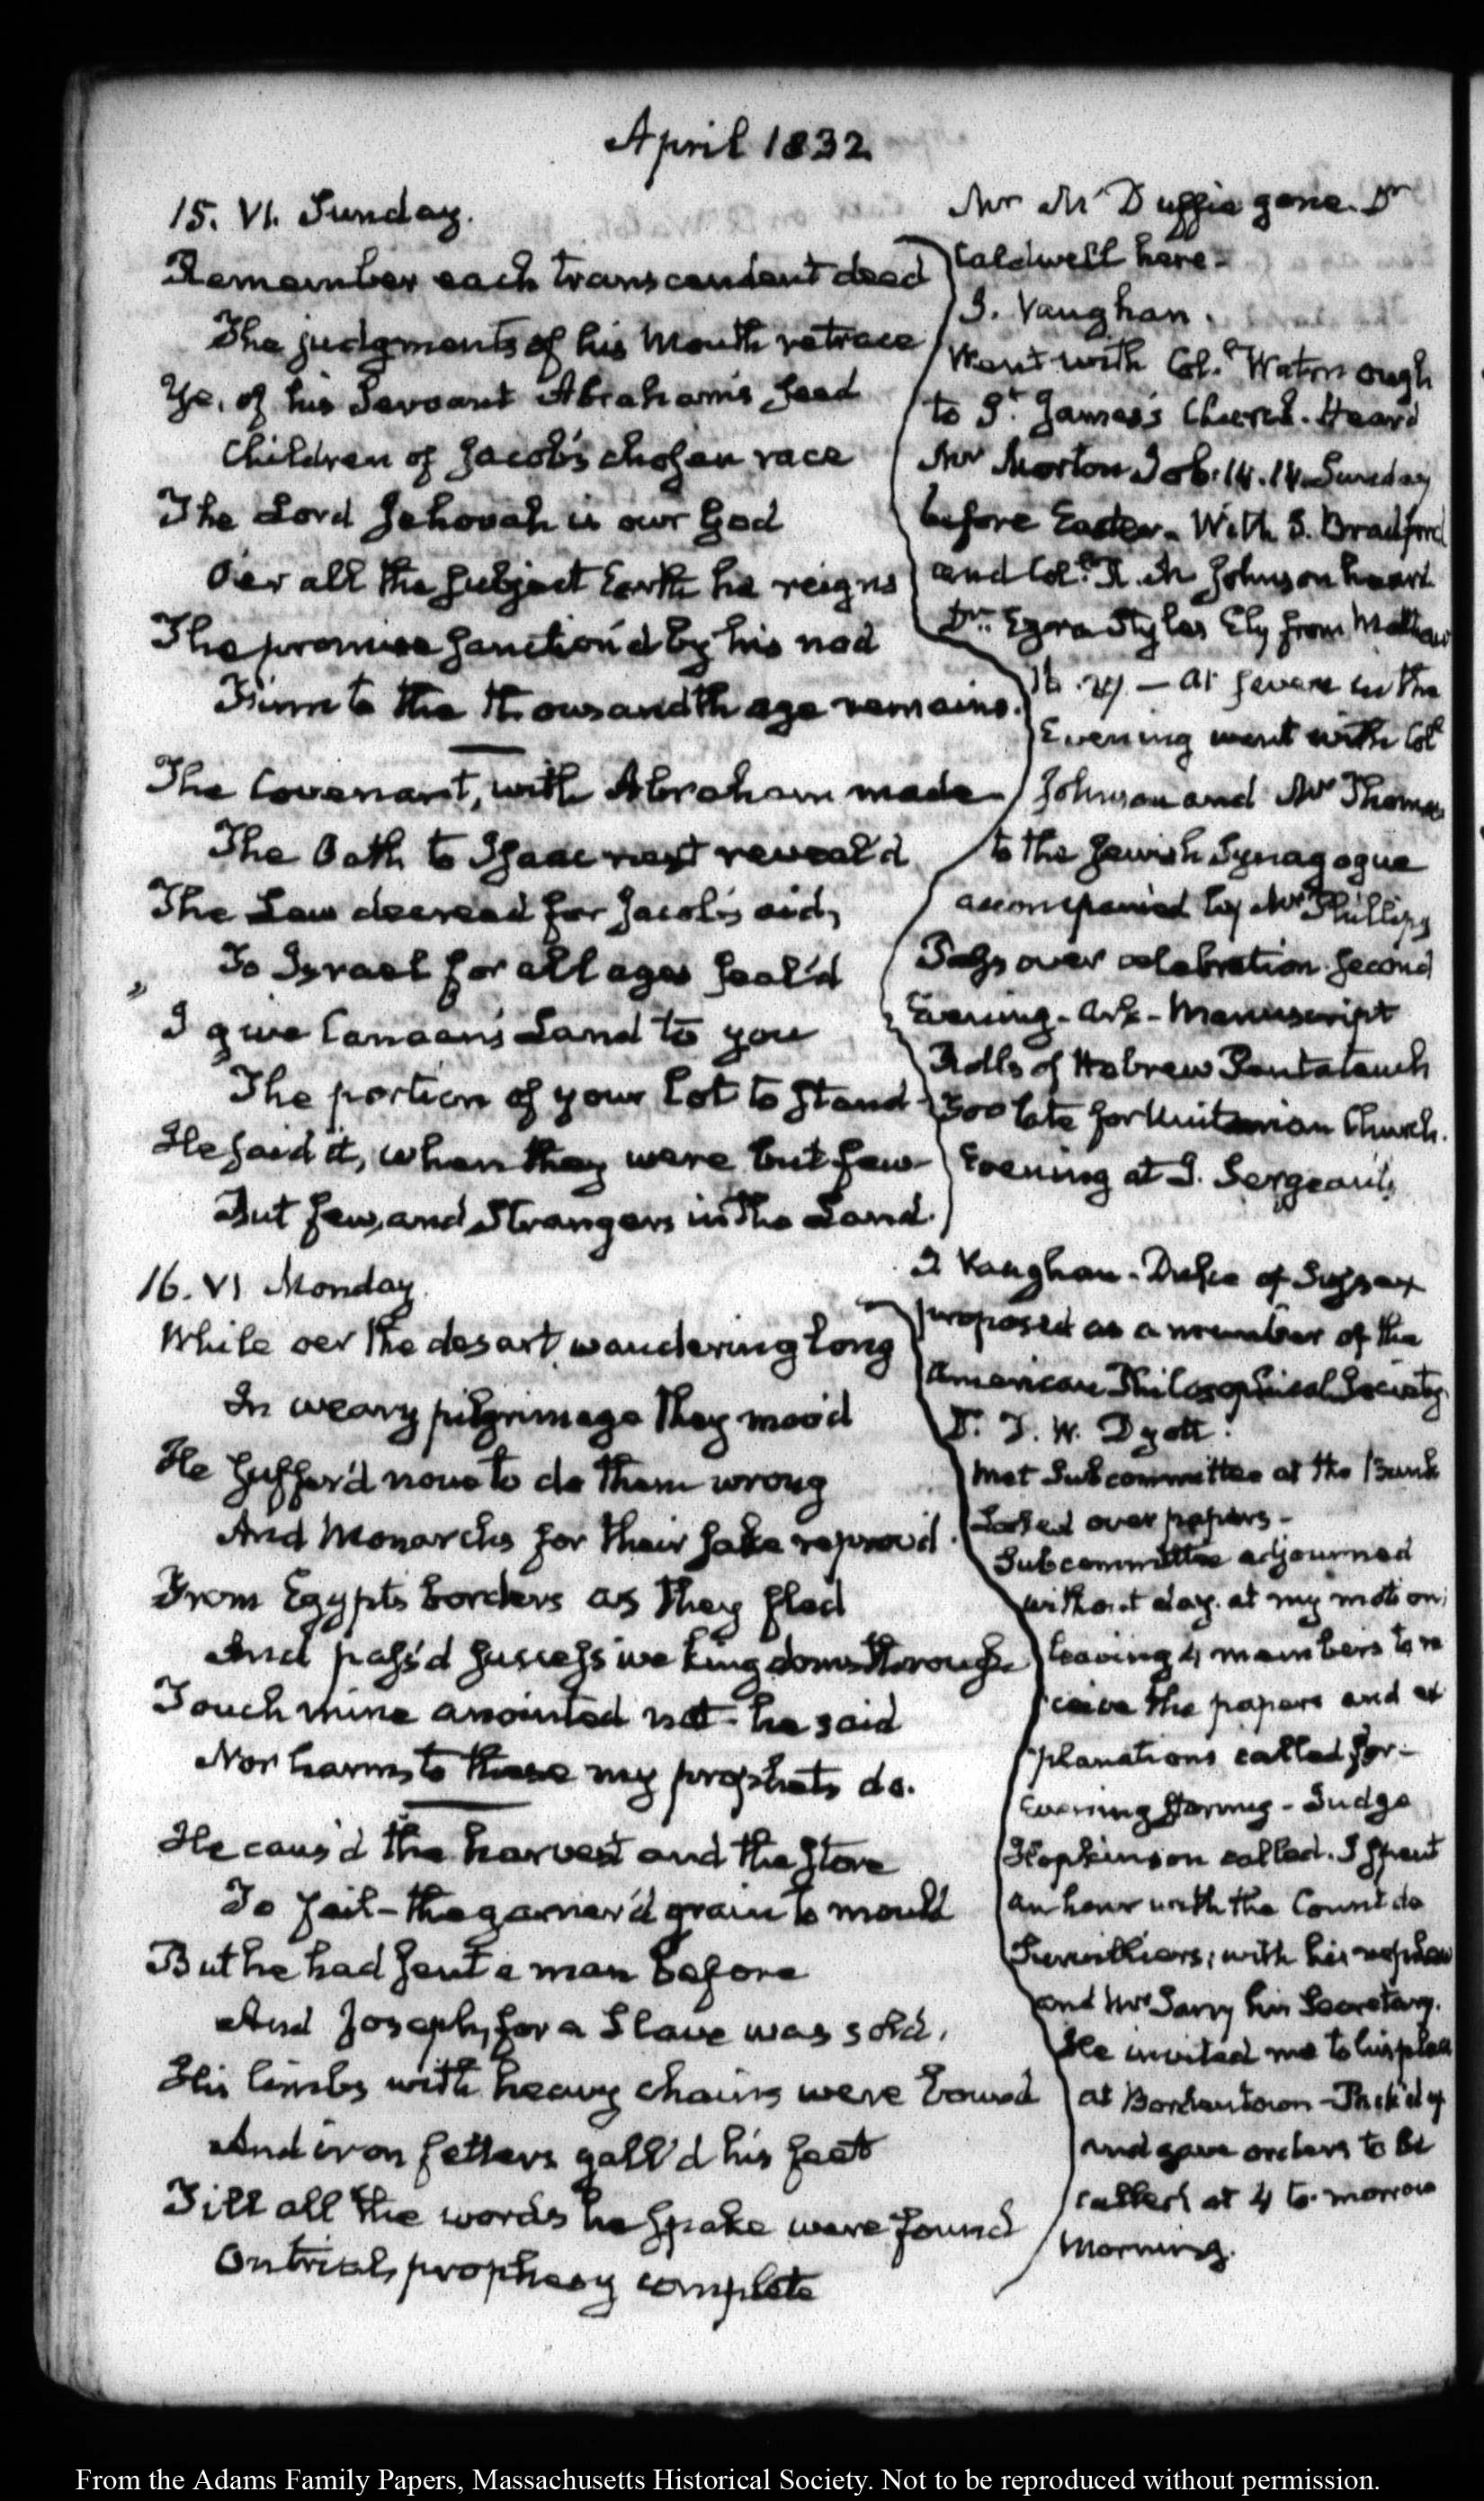 April 1832
15. VI. Sunday.
Remember each transcendent deed
The judgments of his Mouth retrace
Ye, of his Servant Abraham's seed
Children of Jacob's chosen race
The Lord Jehovah is our God
O'er all the subject Earth he reigns
The promise sanction'd by his nod
Firm to the thousandth age remains.
The Covenant, with Abraham made
The Oath to Isaac next reveal'd
The Law decreed for Jacob's aid,
To Israel for all ages seal'd
" I give Canaan's Land to you
The portion of your lot to stand
He said it, when they were but few
But few, and Strangers in the Land.
Mr McDuffie gone. Dr
Caldwell here-
J. Vaughan.
Went with Coll. Watmough
to St. James's Church. Heard
Mr Morton Job. 14.14. Sunday
before Easter. With S. Bradford
and Coll. R. M Johnson heard
Dr. Ezra Styles Ely from Matthew
16. — at seven in the
Evening went with Coll
Johnson and Mr Thomas
to the Jewish Synagogue
accompanied by Mr Phillips
Passover celebration second
Evening - Ark - Manuscript
Rolls of Hebrew Pentateuch
Too late for Unitarian Church.
Evening at J. Sergeant's
16. VI Monday.
While oer the desart wandering long
In weary pilgrimage they mov'd
He suffer'd none to do them wrong
And Monarchs for their sake reprov'd.
From Egypt's borders as they fled
And pass'd successive kingdoms through
Touch mine anointed not - he said
Nor harm to these my prophets do.
He caus'd the harvest and the store
To fail - the garner'd grain to mould
But he had sent a man before
And Joseph, for a Slave was sold.
His limbs with heavy chains were bound
And iron fetters gall'd his feet
Till all the words he spake were found
On trial, prophecy complete
J Vaughan - Duke of Sussex
proposed as a member of the
American Philosophical Society
Dr. T. W. Dyott.
Met Subcommittee at the Bank
Looked over papers -
Subcommittee adjourned
without day. at my motion;
leaving 4 members to re
ceive the papers and ex
planations called for -
Evening - Judge
Hopkinson called. I spent
an hour with the Count de
Survilliers; with his nephew
and Mr Sarry his Secretary.
He invited me to his place
at Bordentown - Pack'd up
and gave orders to be
called at 4 to-morrow
Morning.
From the Adams Family Papers, Massachusetts Historical Society. Not to be reproduced without permission.